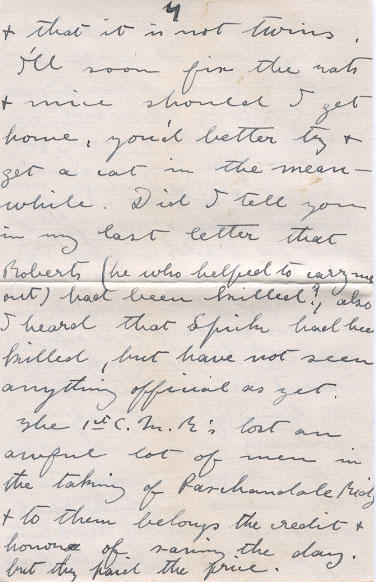 4
& that it is not twins.
I'll soon fix the rats
& mice should I get
home, you'd better try &
get a cat in the mean-
while. Did I tell you
in my last letter that
Roberts (he who helped to carry me
out) had been killed?, also
I heard that Spike had bee
killed, but have not seen
anything official as yet.
The 1st C.M.R's lost an
awful lot of men in
the taking of Paschandale Ridg
& to them belongs the credit &
honour of saving the day.
but they paid the price.